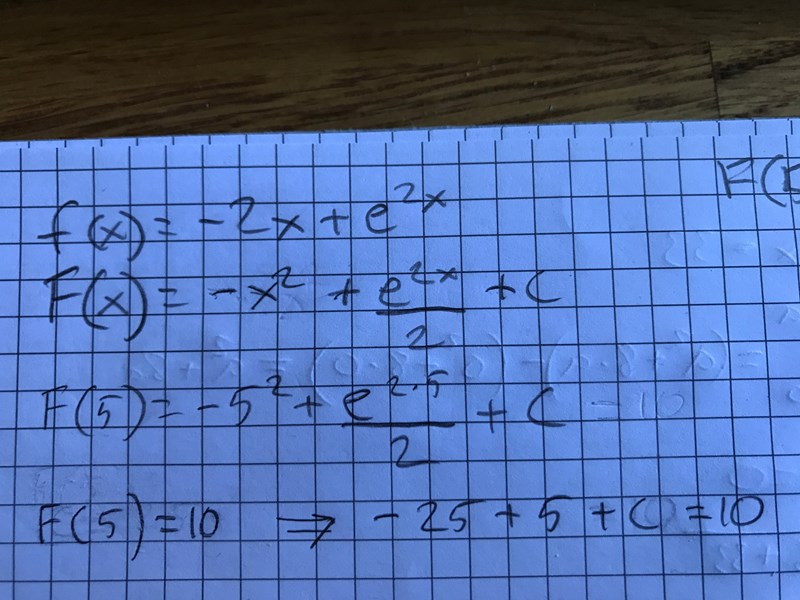 F(5
f(x) = -2x + e^{2x}
F(x) = -x² + e^{2x}/2 + C
F(5) = -5² + e^{2·5}/2 + C = 10
F(5) = 10 ⇒ -25 + 5 + C = 10